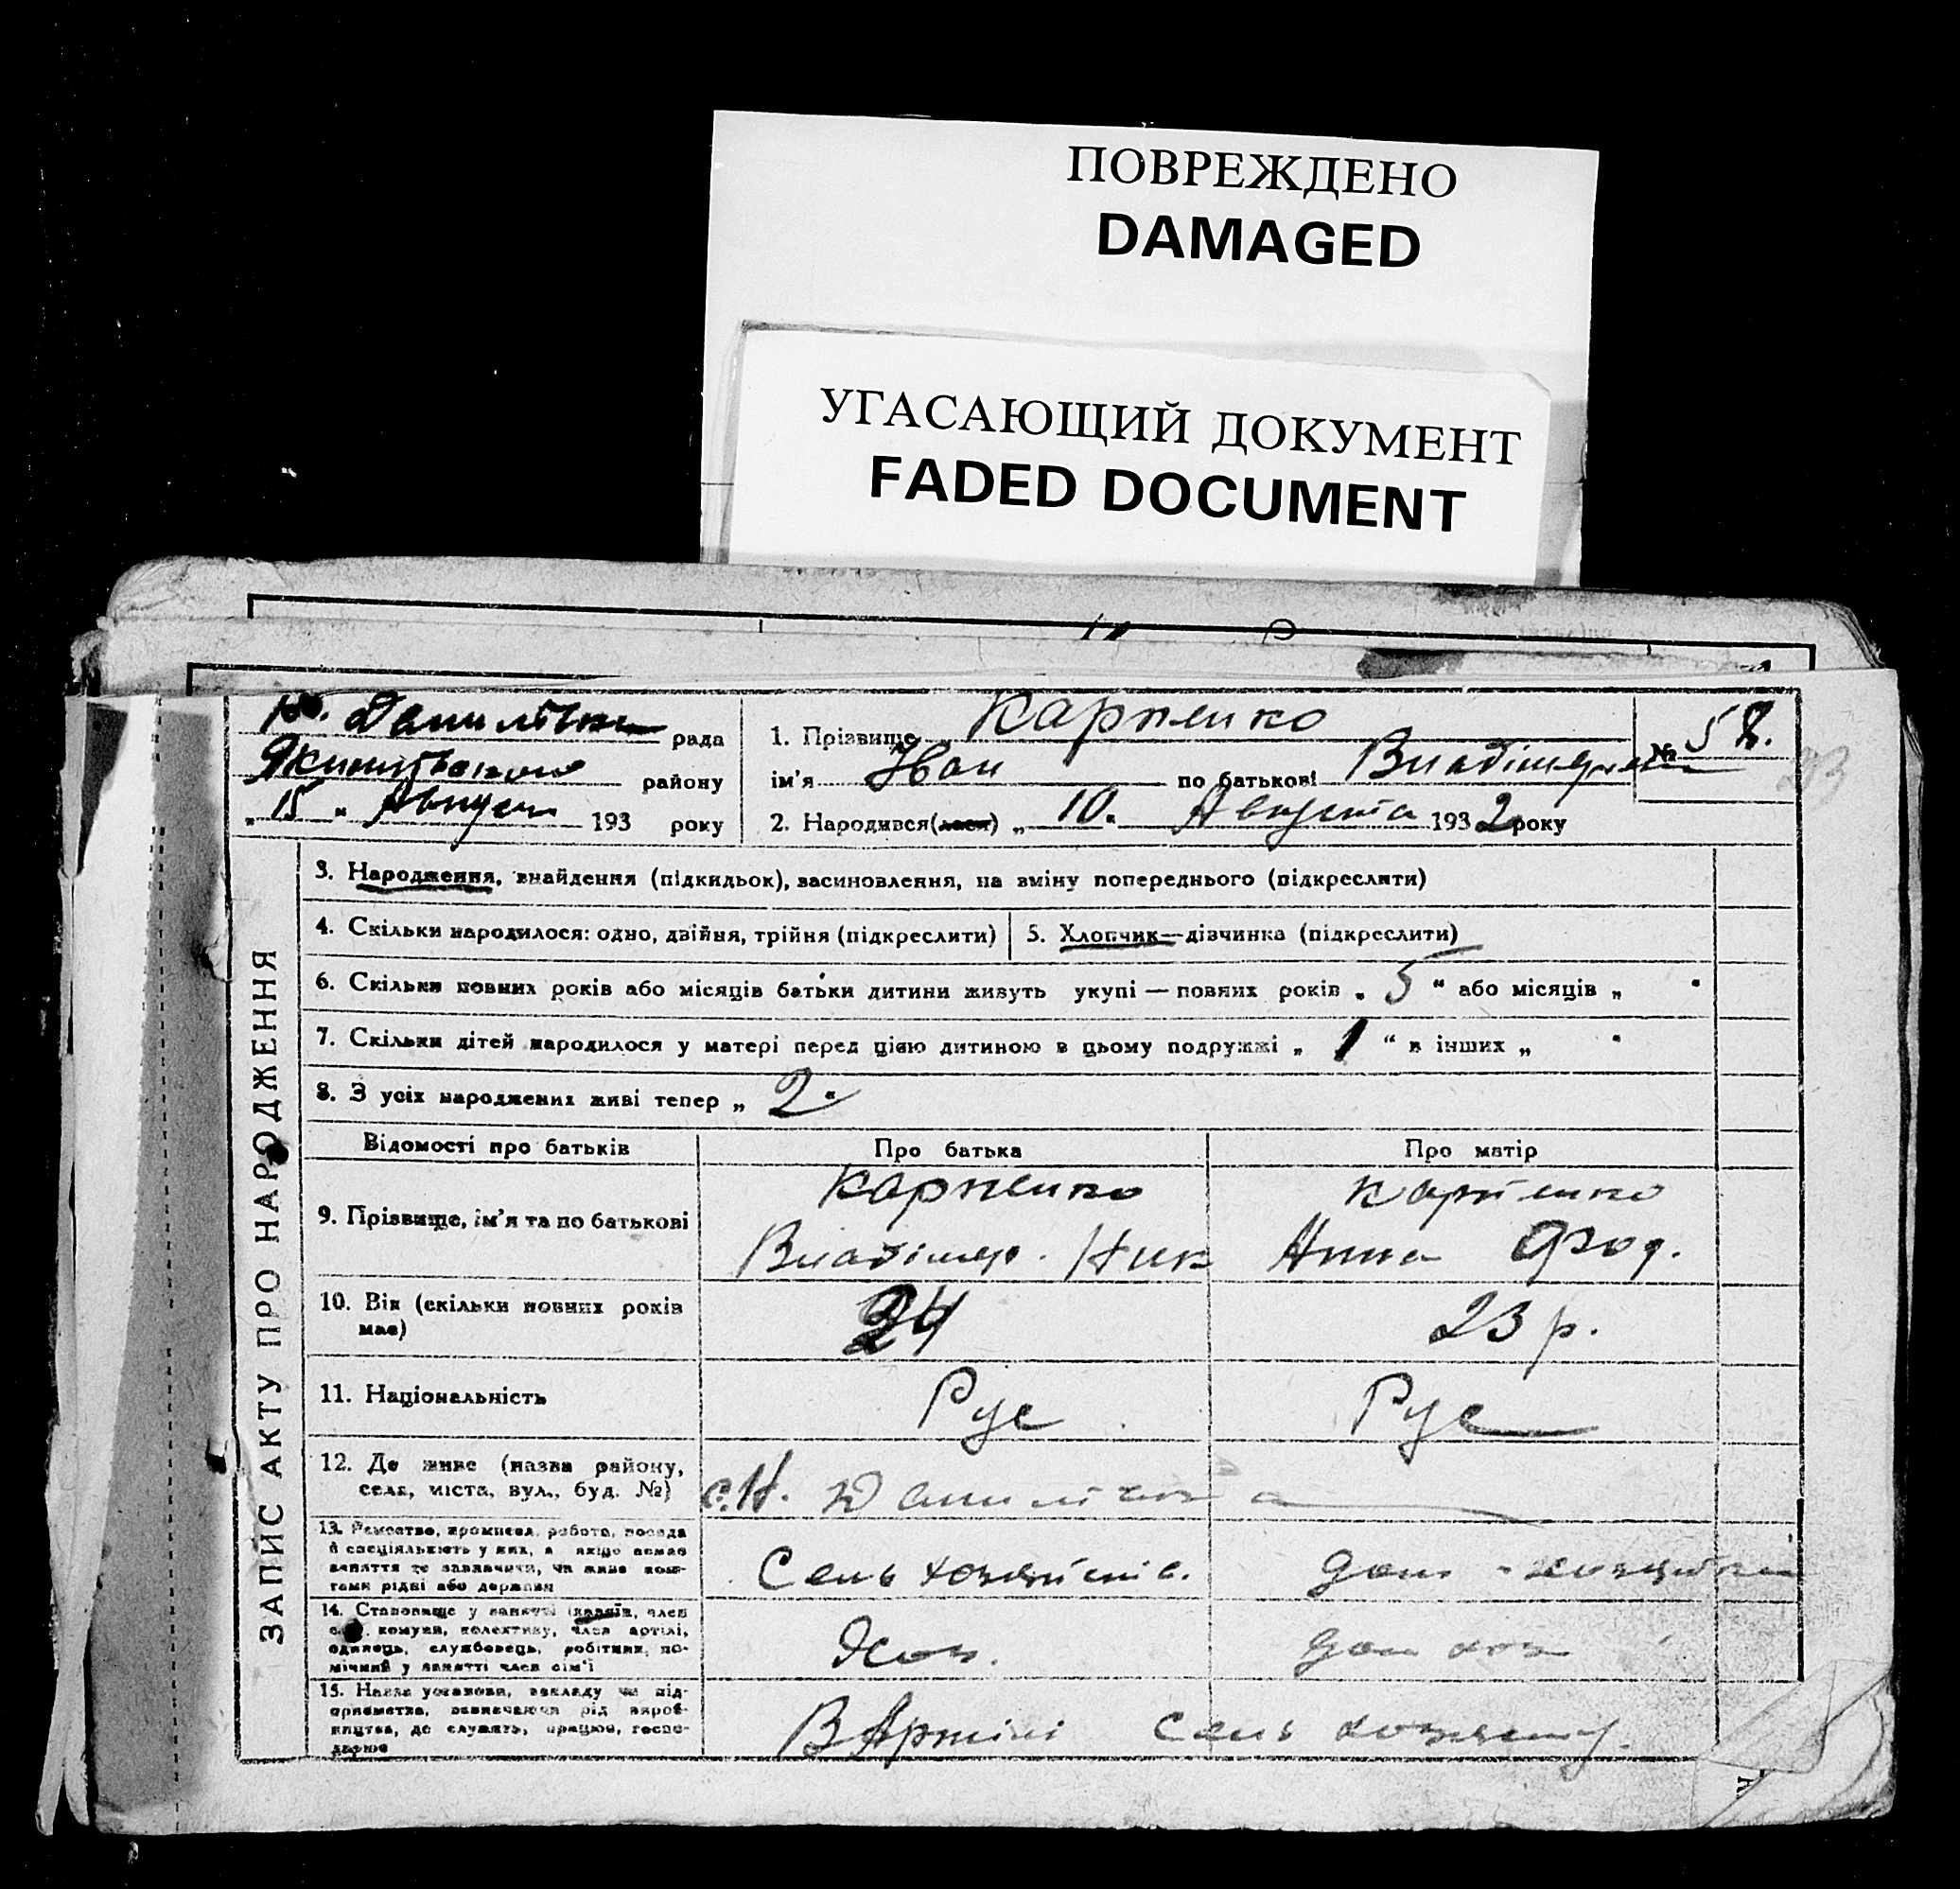 ПОВРЕЖДЕНО
DAMAGED
УГАСАЮЩИЙ ДОКУМЕНТ
FADED DOCUMENT
рада
району
„ 15 " 193 року
1. Прізвище Карпенко
ім'я Иван по батькові
№ 58.
2. Народився(лася) „ 10. Августа 1932 року
ЗАПИС АКТУ ПРО НАРОДЖЕННЯ
3. Народження, знайдення (підкидьок), засиновлення, на зміну попереднього (підкреслити)
4. Скільки народилося: одно, двійня, трійня (підкреслити)
5. Хлопчик—дівчинка (підкреслити)
6. Скільки повних років або місяців батьки дитини живуть укупі — повних років „ 5 " або місяців „ "
7. Скільки дітей народилося у матері перед цією дитиною в цьому подружжі „ 1 " в інших „ "
8. З усіх народжених живі тепер „ 2.
Відомості про батьків Про батька Про матір
9. Прізвище, ім'я та по батькові
Карпенко Карпенко
Владімер. Ник Анна Фод.
10. Вік (скільки повних років має)
24 23 р.
11. Національність Рус Рус
12. Де живе (назва району, села, міста, вул., буд. №)
с. Н. Данилівка
13. Ремество, промисел, робота, посада й спеціяльність у них, а якщо немає заняття то зазначити, чи живе коштами рідні або держави
14. Становище у занятті (хазяїн, член комуни, колективу, член артілі, одинець, службовець, робітник, помічний у занятті член сім'ї
15. Назва установи, закладу чи підприємства, зазначаючи рід виробництва, де служить, працює, господарює
В Артілі Сель